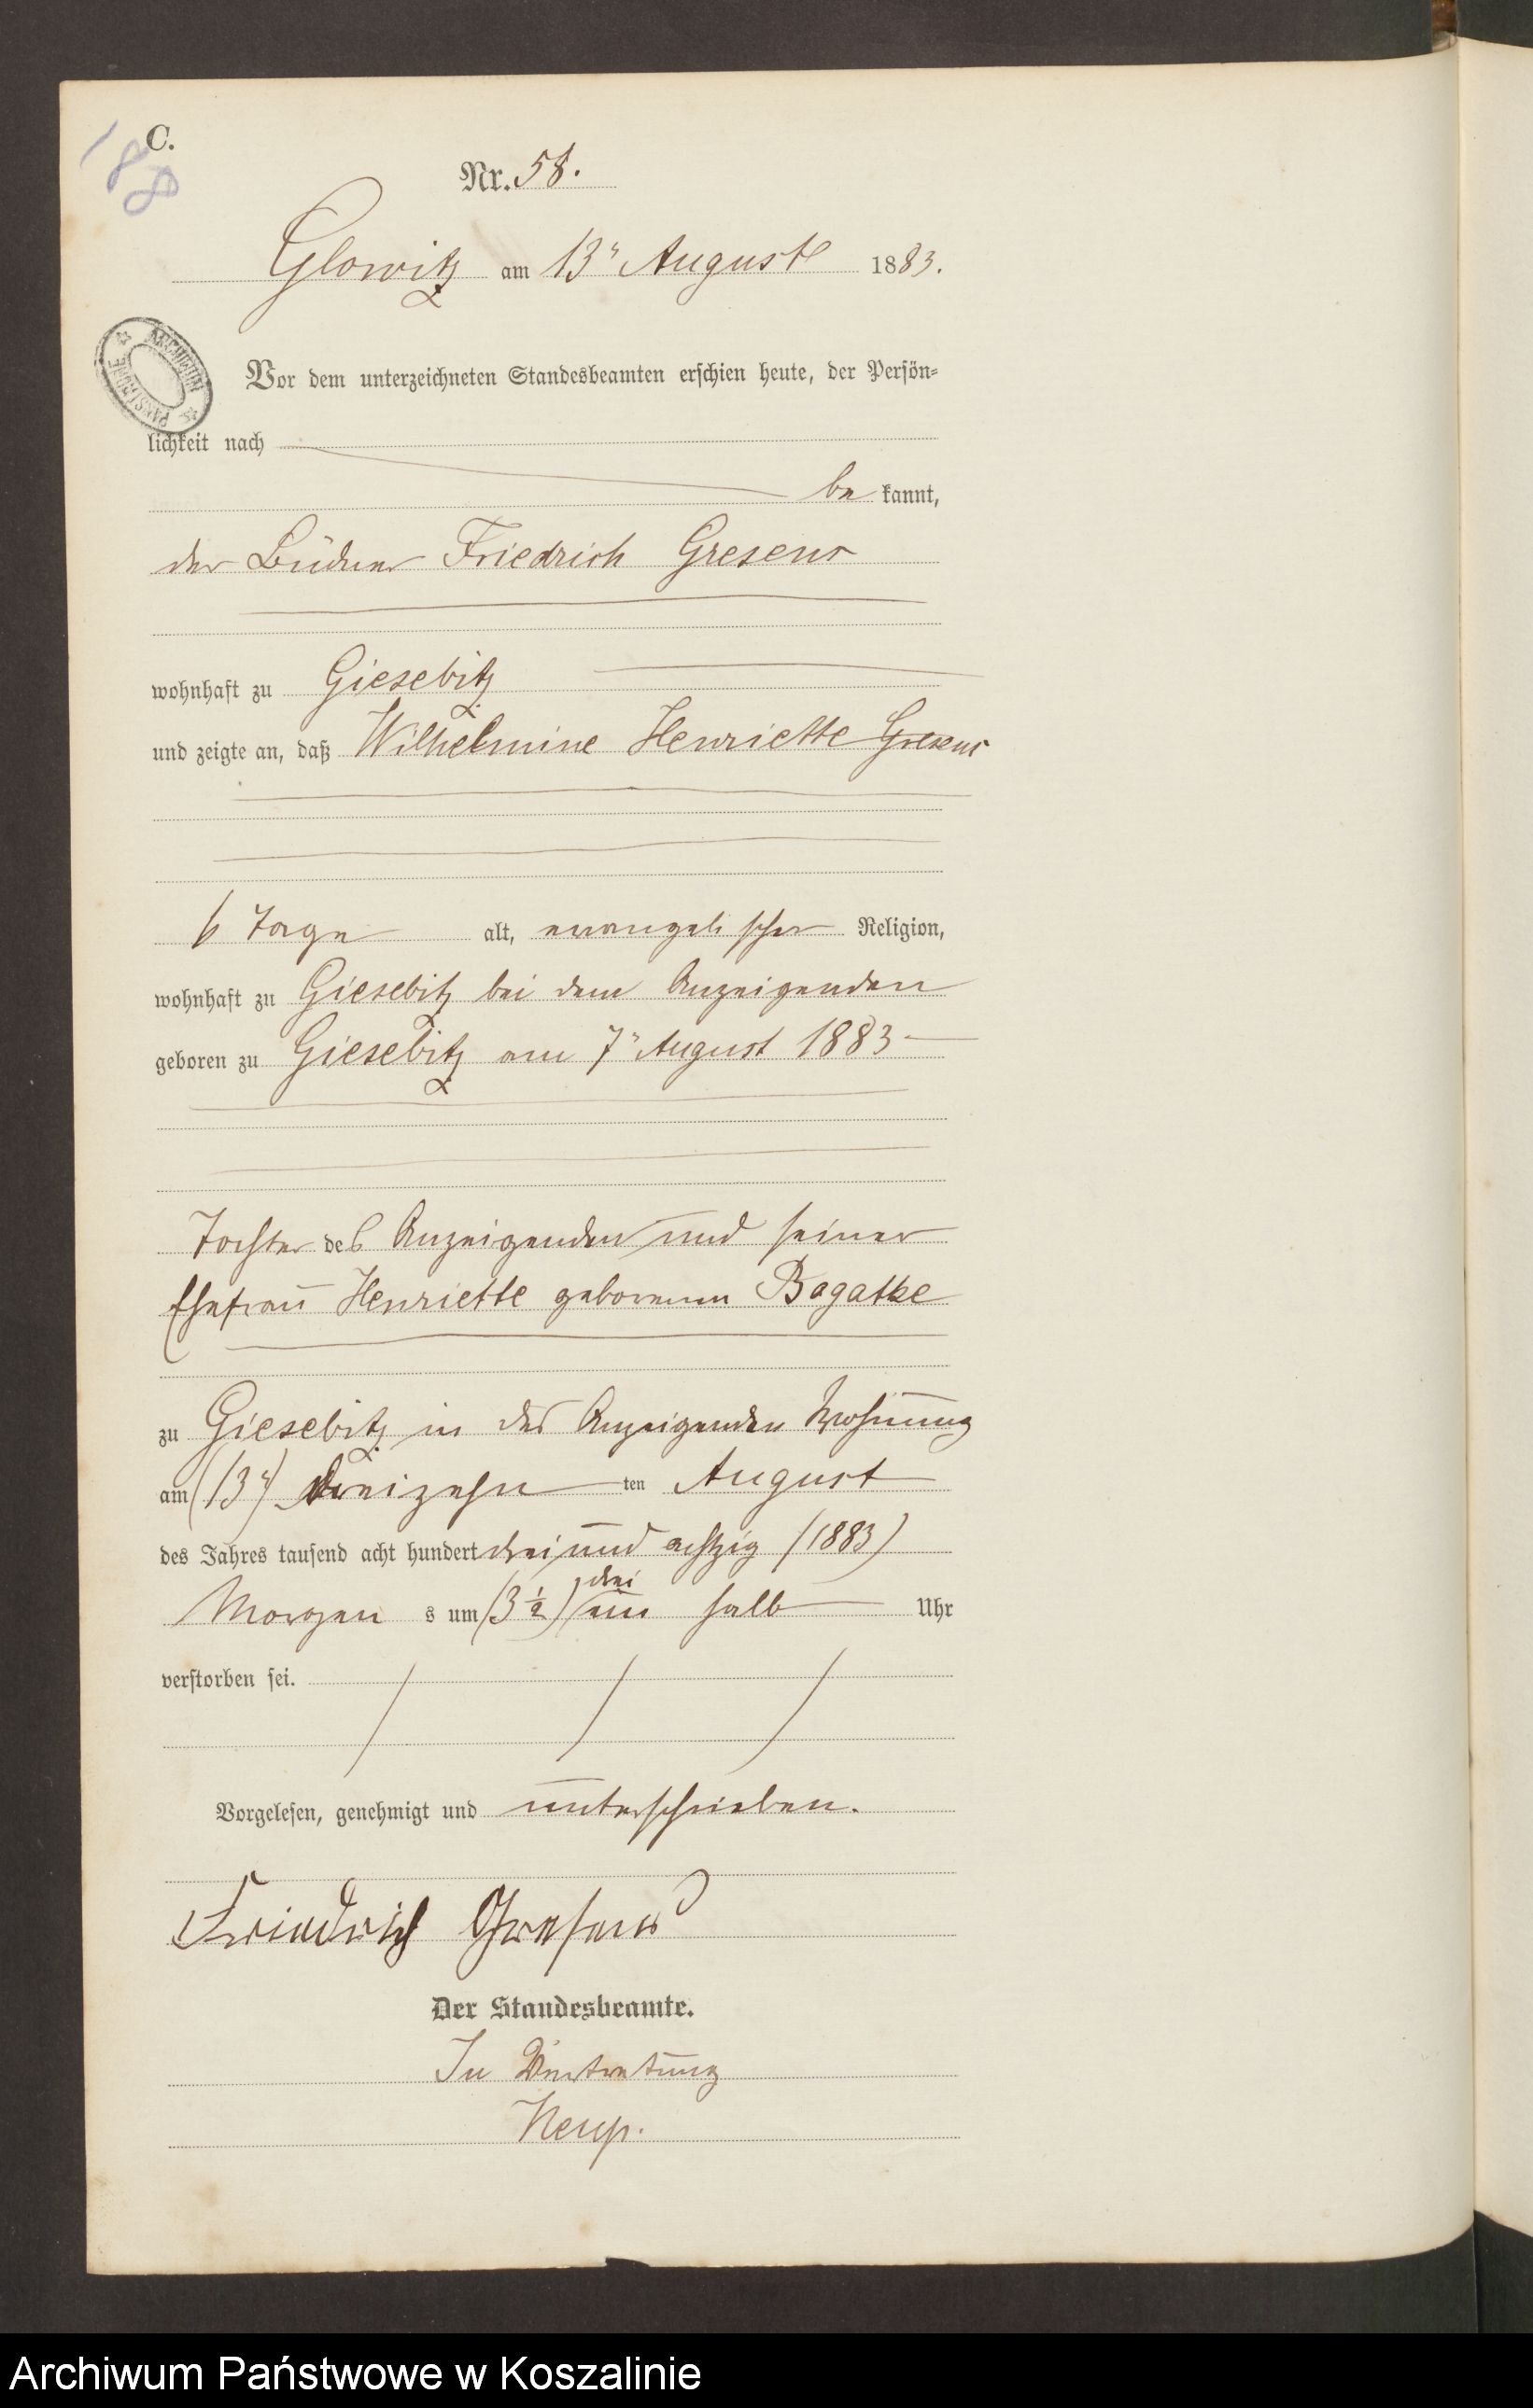 C.
188
Nr. 58.
Glowitz am 13ⁿ August 1883.
ARCHIWUM PAŃSTWOWE
Vor dem unterzeichneten Standesbeamten erschien heute, der Persön-
lichkeit nach
be kannt,
der Büdner Friedrich Gresens
wohnhaft zu Giesebitz
und zeigte an, daß Wilhelmine Henriette Gresens
6 Tage alt, evangelischer Religion,
wohnhaft zu Giesebitz bei dem Anzeigenden
geboren zu Giesebitz am 7ⁿ August 1883
Tochter des Anzeigenden und seiner
Ehefrau Henriette geborenen Bagatke
zu Giesebitz in des Anzeigenden Wohnung
am (13ⁿ) dreizehn ten August
des Jahres tausend acht hundert drei und achtzig (1883)
drei
Morgen s um (3½) ein halb Uhr
verstorben sei.
Vorgelesen, genehmigt und unterschrieben.
Friedrich Gresens
Der Standesbeamte.
In Vertretung
Archiwum Państwowe w Koszalinie